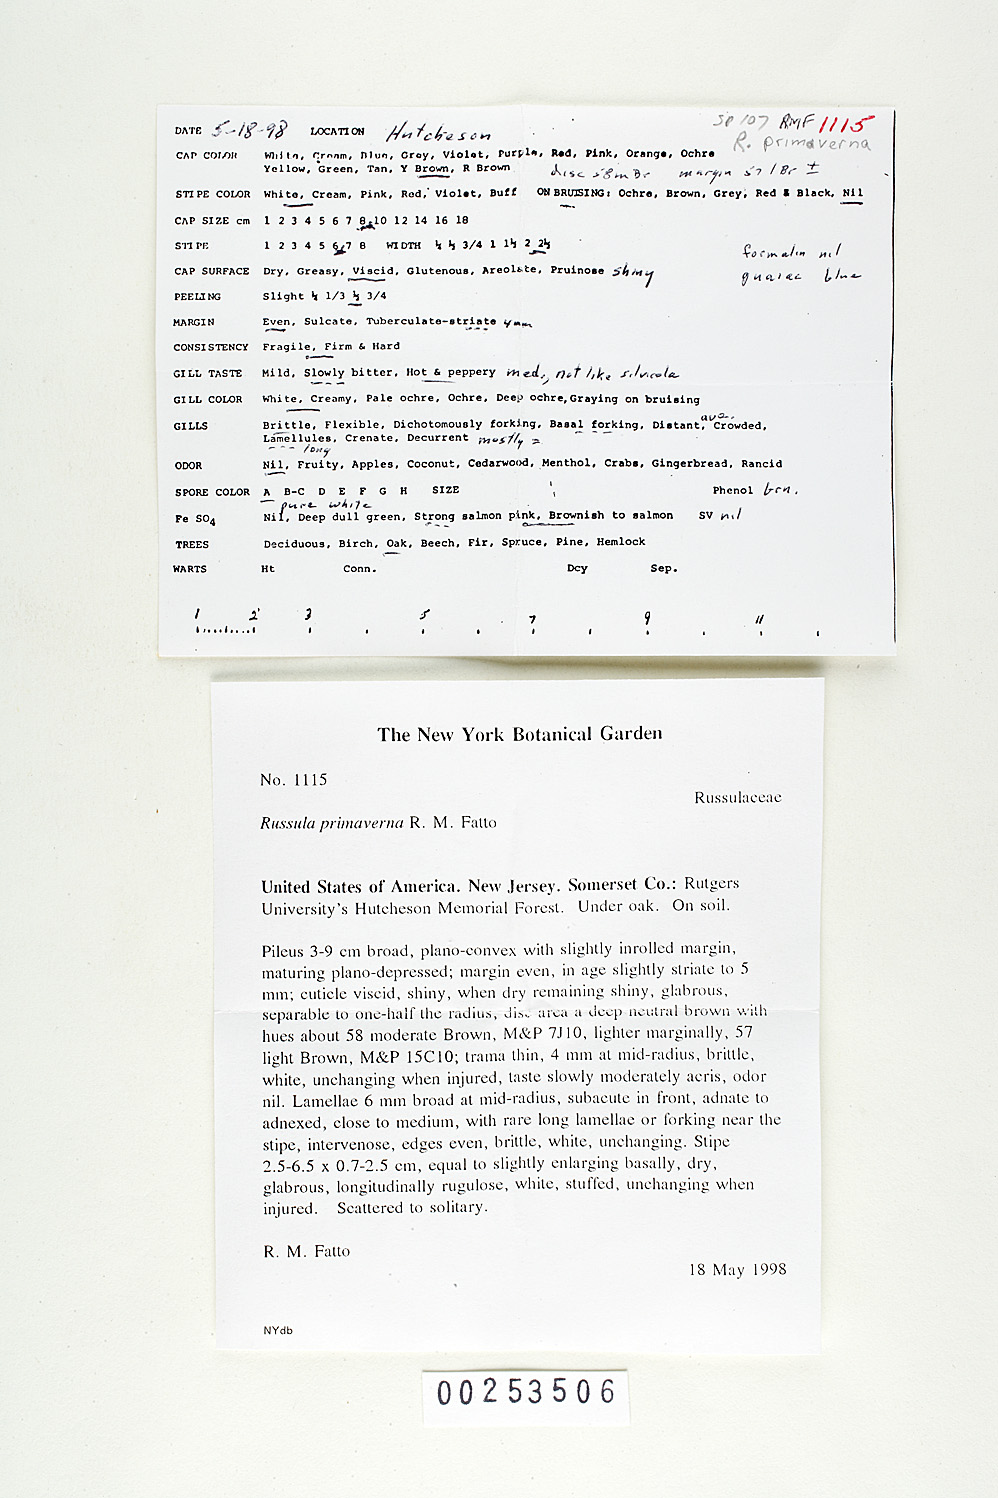 DATE 5-18-98 LOCATION Hutcheson
SP 107 RMF 1115
R. primaverna
CAP COLOR White, Cream, Blue, Grey, Violet, Purple, Red, Pink, Orange, Ochre
Yellow, Green, Tan, Y Brown, R Brown disc 58 m Br margin 57 l Br ±
STIPE COLOR White, Cream, Pink, Red, Violet, Buff ON BRUISING: Ochre, Brown, Grey, Red & Black, Nil
CAP SIZE cm 1 2 3 4 5 6 7 8 10 12 14 16 18
STIPE 1 2 3 4 5 6 7 8 WIDTH ¼ ½ 3/4 1 1½ 2 2½
formalin nil
CAP SURFACE Dry, Greasy, Viscid, Glutenous, Areolate, Pruinose shiny
guaiac blue
PEELING Slight ¼ 1/3 ½ 3/4
MARGIN Even, Sulcate, Tuberculate-striate 4mm
CONSISTENCY Fragile, Firm & Hard
GILL TASTE Mild, Slowly bitter, Hot & peppery med., not like silvicola
GILL COLOR White, Creamy, Pale ochre, Ochre, Deep ochre, Graying on bruising
GILLS Brittle, Flexible, Dichotomously forking, Basal forking, Distant, ave. Crowded,
Lamellules, Crenate, Decurrent mostly =
long
ODOR Nil, Fruity, Apples, Coconut, Cedarwood, Menthol, Crabs, Gingerbread, Rancid
SPORE COLOR A B-C D E F G H SIZE Phenol brn.
pure white
Fe SO4 Nil, Deep dull green, Strong salmon pink, Brownish to salmon SV nil
TREES Deciduous, Birch, Oak, Beech, Fir, Spruce, Pine, Hemlock
WARTS Ht Conn. Dcy Sep.
1 2 3 5 7 9 11
The New York Botanical Garden
No. 1115
Russulaceae
Russula primaverna R. M. Fatto
United States of America. New Jersey. Somerset Co.: Rutgers
University's Hutcheson Memorial Forest. Under oak. On soil.
Pileus 3-9 cm broad, plano-convex with slightly inrolled margin,
maturing plano-depressed; margin even, in age slightly striate to 5
mm; cuticle viscid, shiny, when dry remaining shiny, glabrous,
separable to one-half the radius, disc area a deep neutral brown with
hues about 58 moderate Brown, M&P 7J10, lighter marginally, 57
light Brown, M&P 15C10; trama thin, 4 mm at mid-radius, brittle,
white, unchanging when injured, taste slowly moderately acris, odor
nil. Lamellae 6 mm broad at mid-radius, subacute in front, adnate to
adnexed, close to medium, with rare long lamellae or forking near the
stipe, intervenose, edges even, brittle, white, unchanging. Stipe
2.5-6.5 x 0.7-2.5 cm, equal to slightly enlarging basally, dry,
glabrous, longitudinally rugulose, white, stuffed, unchanging when
injured. Scattered to solitary.
R. M. Fatto
18 May 1998
NYdb
00253506